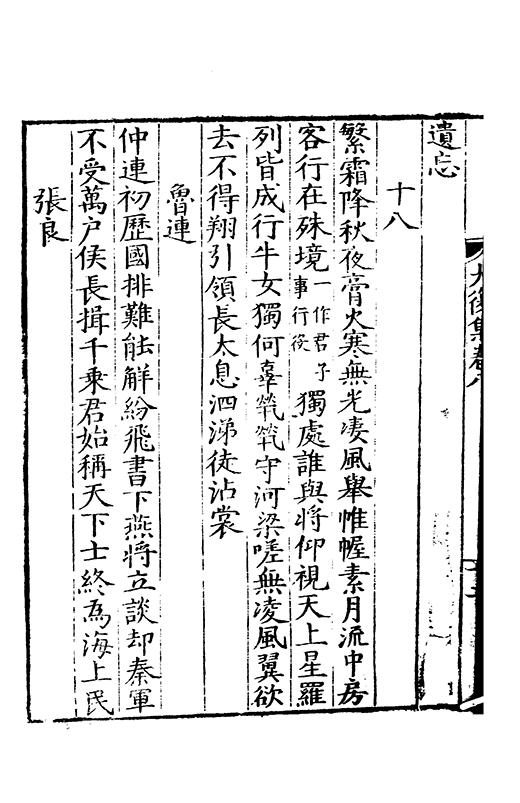 遺忘
十八
繁霜降秋夜膏火寒無光凄風舉帷幄素月流中房
客行在殊境一作君子事行役獨處誰與將仰視天上星羅
列皆成行牛女獨何辜煢煢守河梁嗟無凌風翼欲
去不得翔引領長太息泗涕徒沾裳
魯連
仲連初歷國排難能解紛飛書下燕將立談却秦軍
不受萬户侯長揖千乘君始稱天下士終為海上民
張良